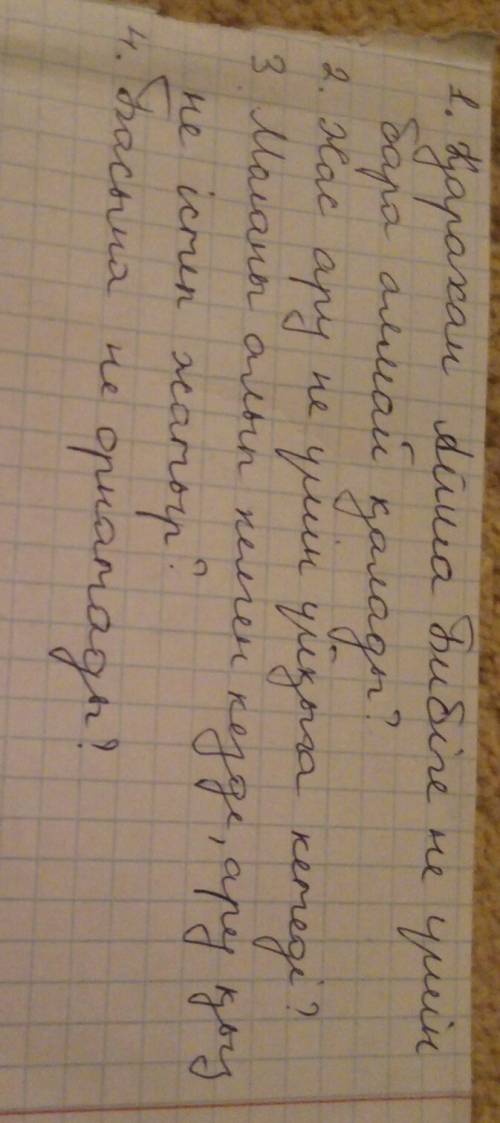 1. Қарахан Айша Бибіге не үшін
бара алмай қалады?
2. Жас ару не үшін ұйқыға кетеді?
3. Молданы алып келген кезде, ару қыз
не істеп жатыр?
4. Басына не орнатады?